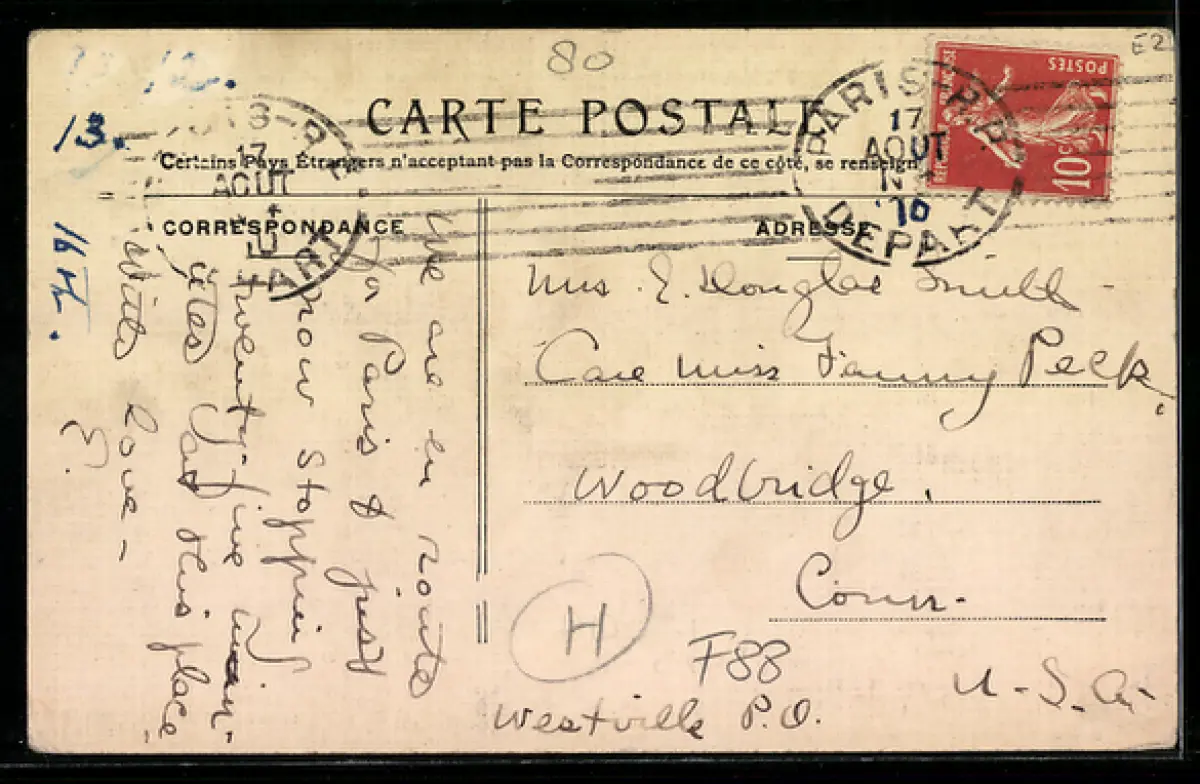 80
E2
13.
191
CARTE POSTALE
Certains Pays Étrangers n'acceptant pas la Correspondance de ce côté, se renseign
CORRESPONDANCE
ADRESSE
PARIS
17
AOUT
'10
DEPART
17
AOUT
REPUBLIQUE FRANÇAISE
POSTES
10c
We are en route
to Paris & just
now stopping
twenty-five min-
utes at this place
With love -
E.
Mrs E. Douglas Smith
Care Miss Fanny Peck.
Woodbridge.
Conn.
U.S.A.
H
F88
Westville P.O.